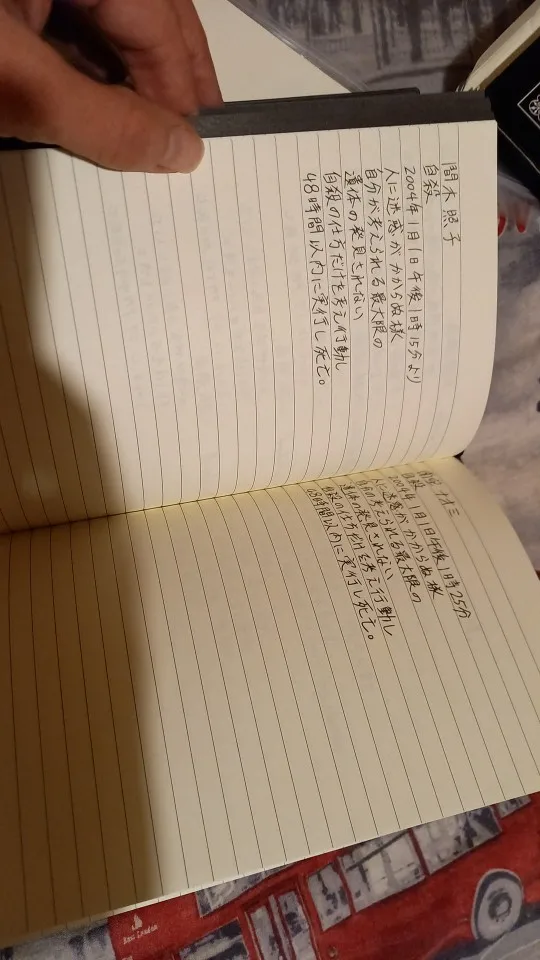 間木照子
自殺
2004年1月1日午後1時15分より
人に迷惑がかからぬ様
自分が考えられる最大限の
遺体の発見されない
自殺の仕方だけを考え行動し
48時間以内に実行し死亡。
ナオミ
自殺
2004年1月1日午後1時25分
人に迷惑がかからぬ様
自分の考えられる最大限の
遺体の発見されない
自殺の仕方だけを考え行動し
48時間以内に実行し死亡。